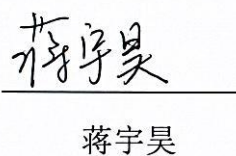 蒋宇昊
蒋宇昊